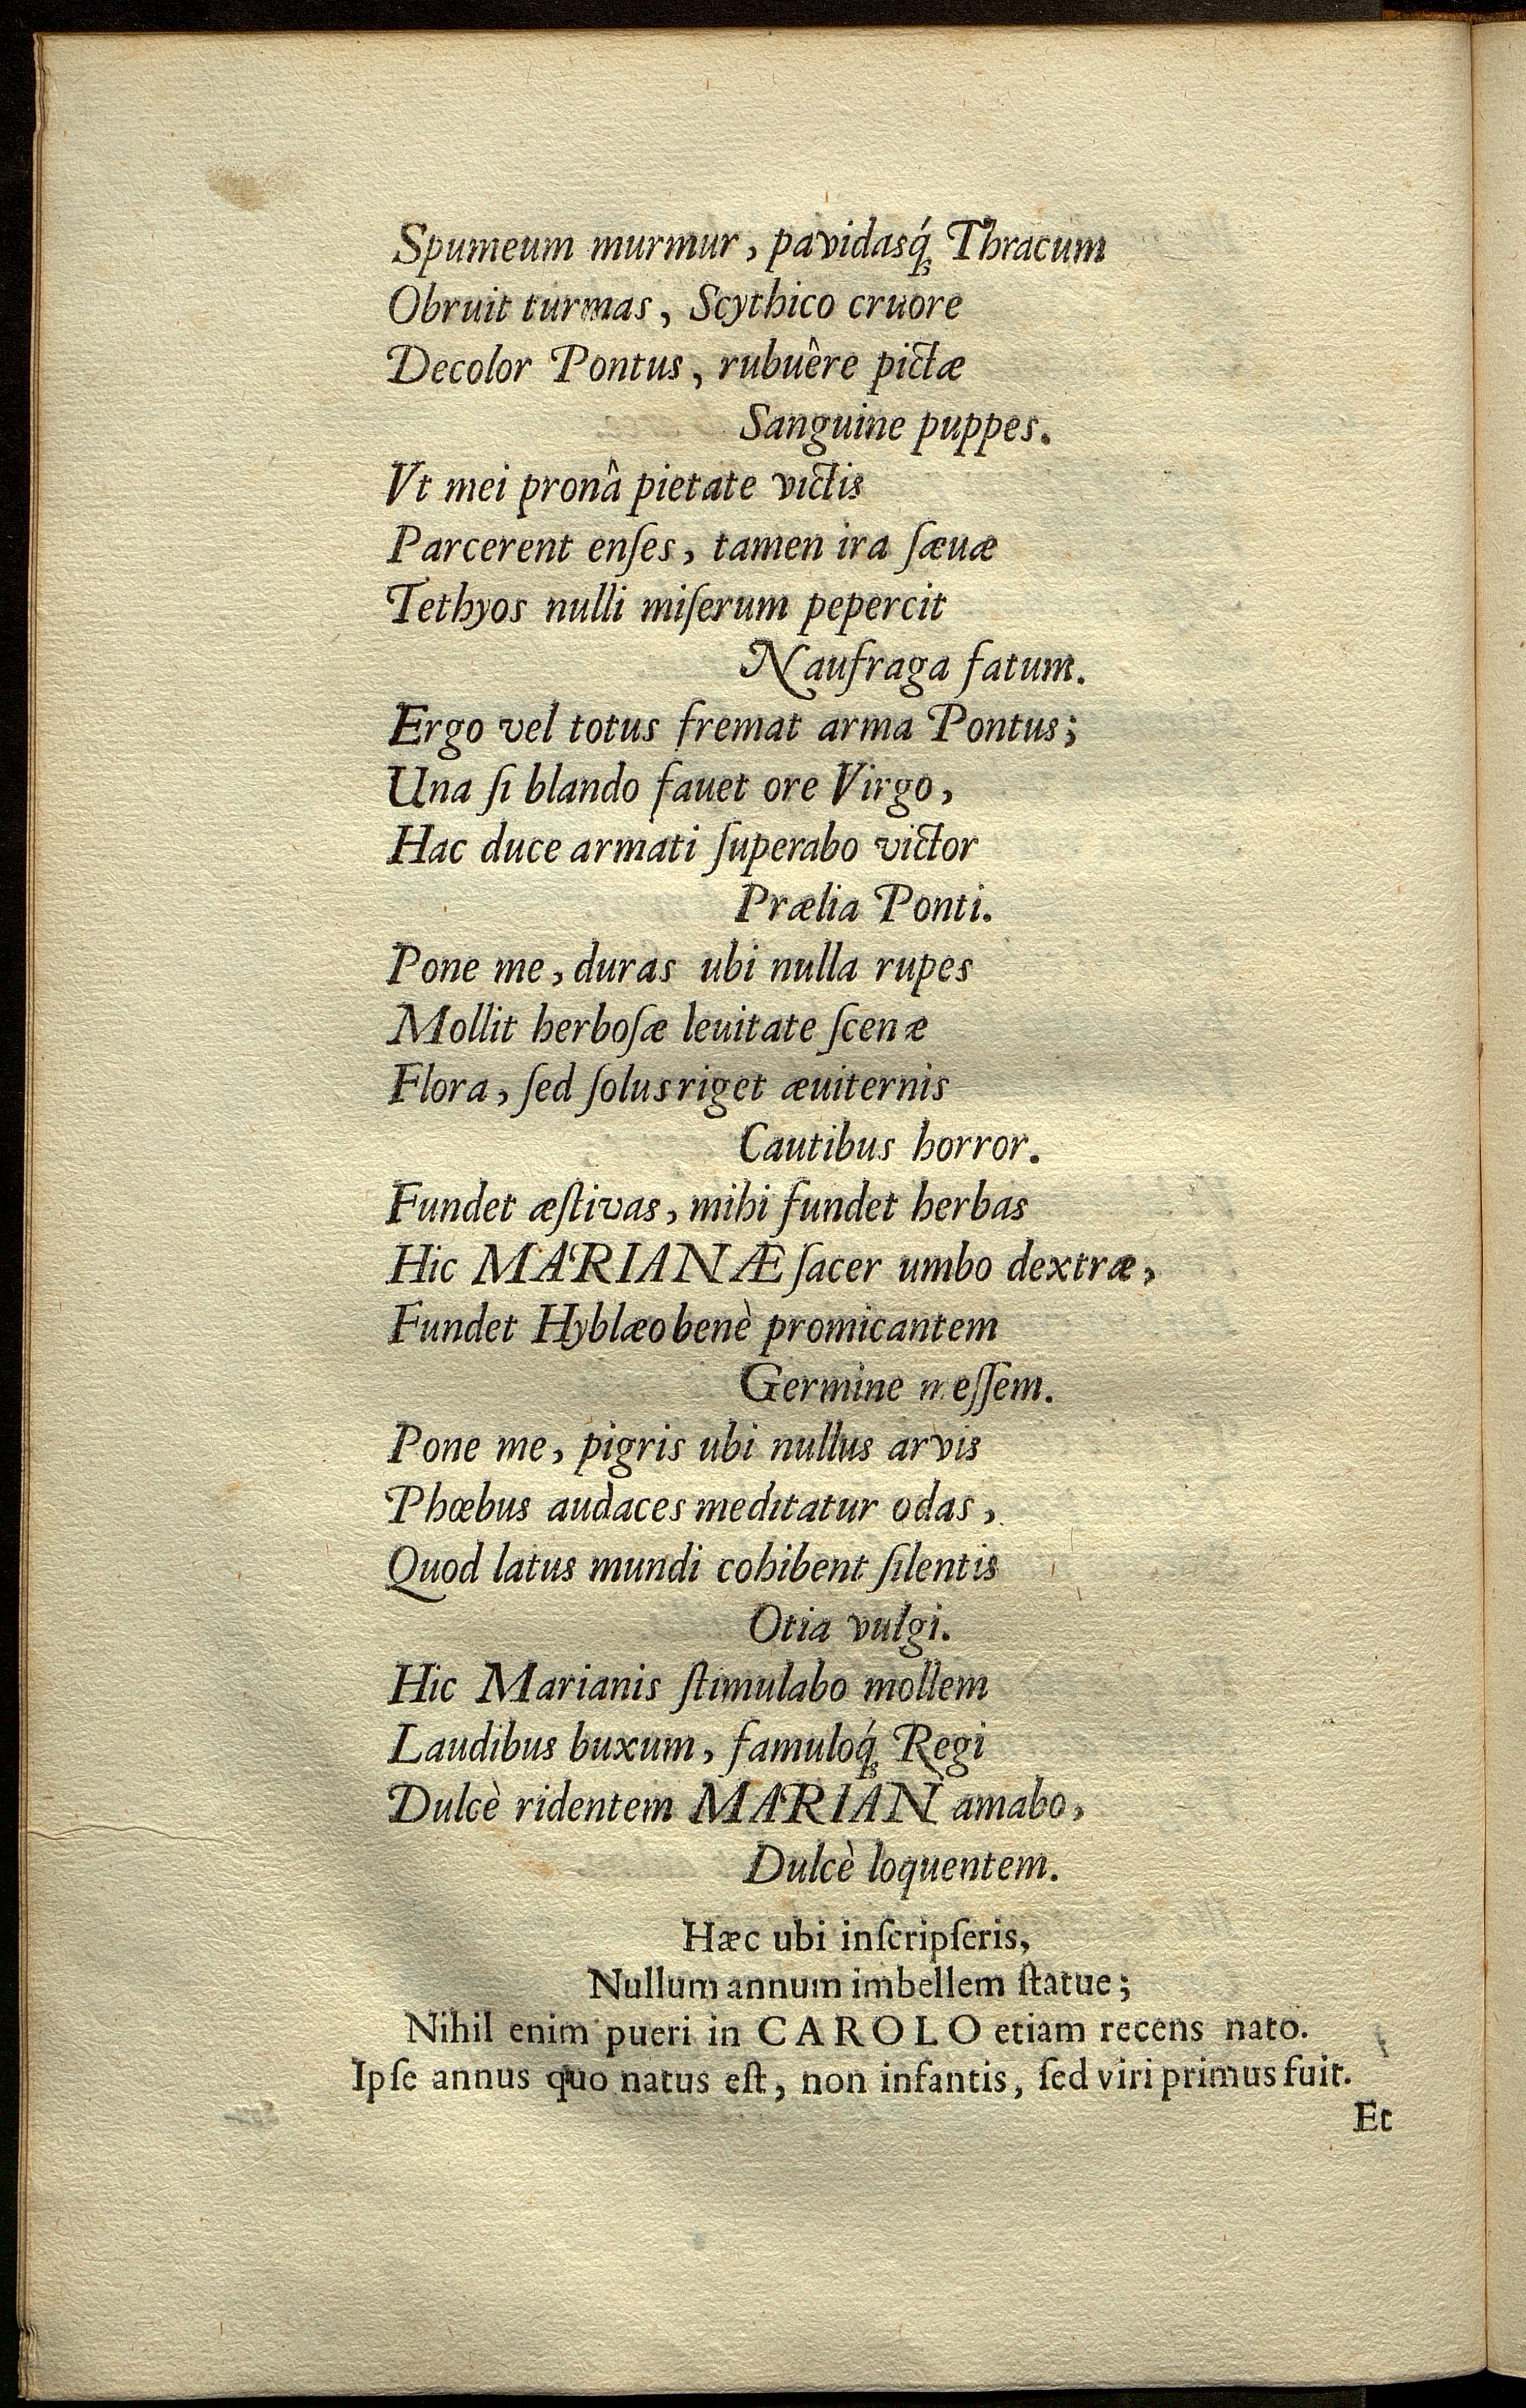 Spumeum murmur, pavidasq́ꝫ Thracum
Obruit turmas, Scythico cruore
Decolor Pontus, rubuêre pictæ
Sanguine puppes.
Vt mei pronâ pietate victis
Parcerent enſes, tamen ira ſæuæ
Tethyos nulli miſerum pepercit
Naufraga fatum.
Ergo vel totus fremat arma Pontus;
Una ſi blando fauet ore Virgo,
Hac duce armati ſuperabo victor
Prælia Ponti.
Pone me, duras ubi nulla rupes
Mollit herboſæ leuitate ſcenæ
Flora, ſed ſolus riget æuiternis
Cautibus horror.
Fundet æſtivas, mihi fundet herbas
Hic MARIANÆ ſacer umbo dextræ,
Fundet Hyblæo benè promicantem
Germine meſſem.
Pone me, pigris ubi nullus arvis
Phœbus audaces meditatur odas,
Quod latus mundi cohibent ſilentis
Otia vulgi.
Hic Marianis ſtimulabo mollem
Laudibus buxum, famuloq́ꝫ Regi
Dulcè ridentem MARIAN amabo,
Dulcè loquentem.
Hæc ubi inſcripſeris,
Nullum annum imbellem ſtatue;
Nihil enim pueri in CAROLO etiam recens nato.
Ipſe annus quo natus eſt, non infantis, ſed viri primus fuit.
Et